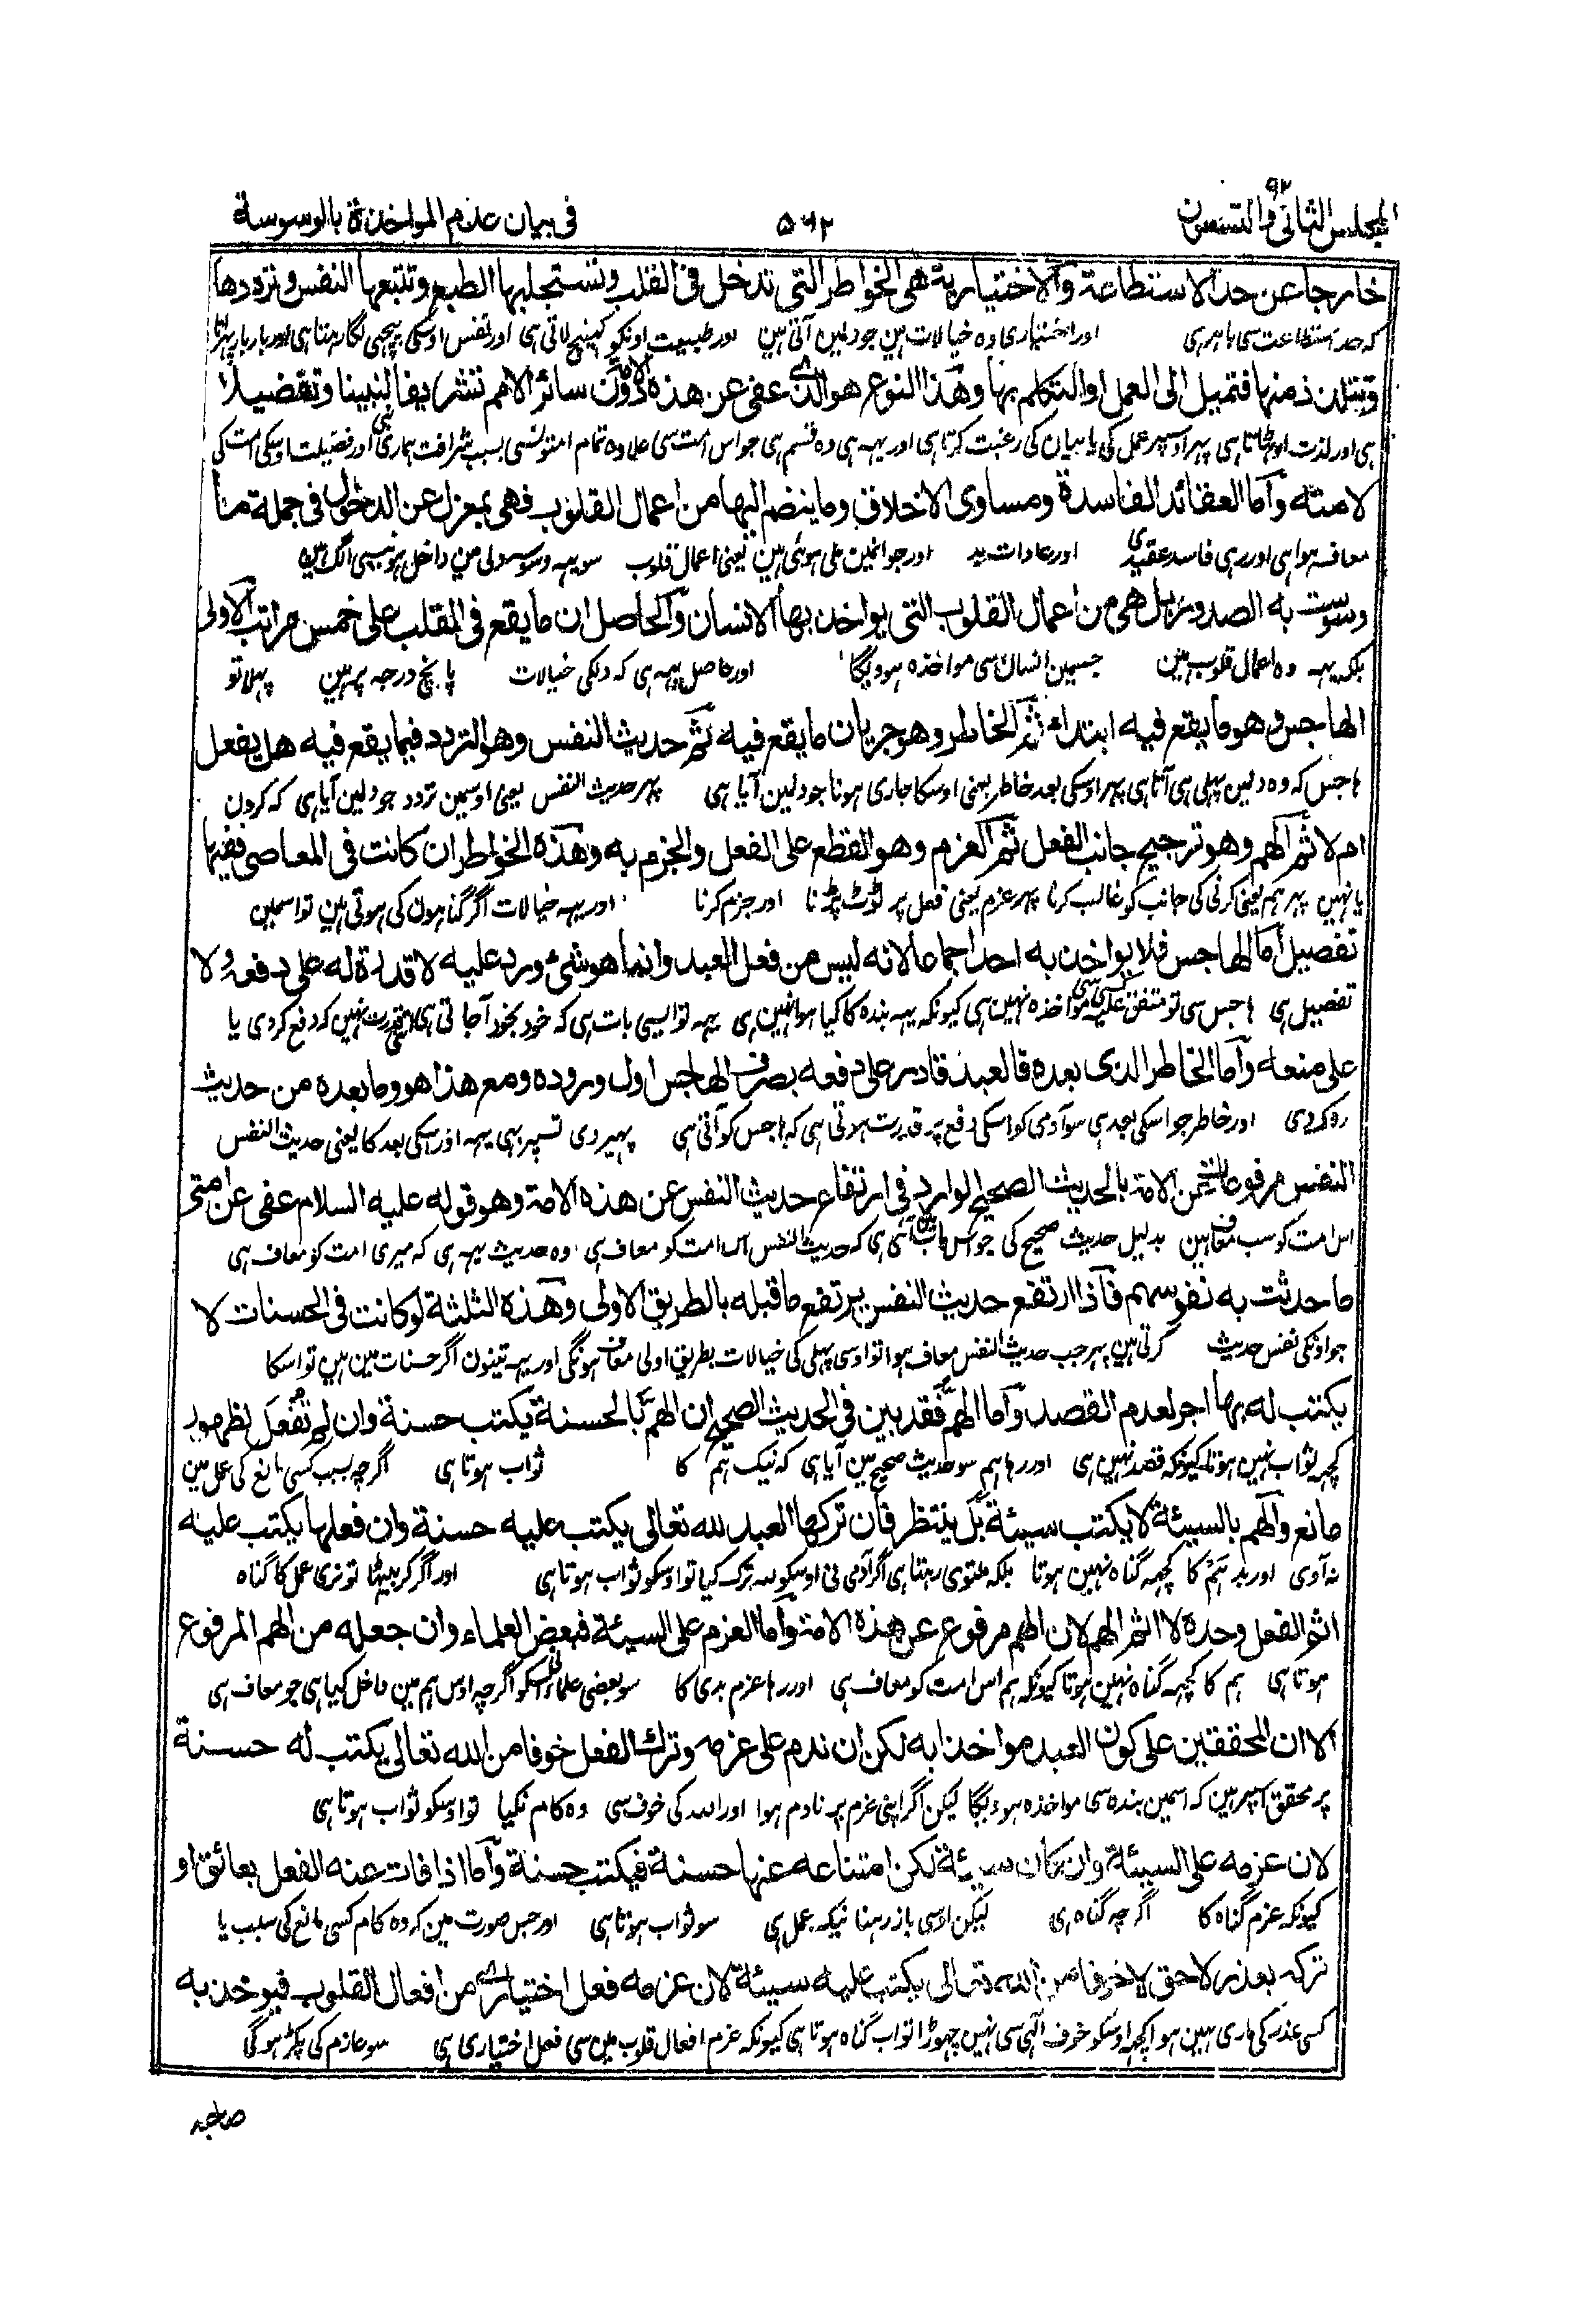 المجلس الثانی والتسعون ۹۲
۵۶۲
فی بیان عدم المواخذة بالوسوسة
خارجا عن حد الاستطاعة والاختیاریة هی الخواطر التی تدخل فی القلب وتستجلبها الطبع وتتبعها النفس وترددها
که حد استطاعت سی باهر هی اور اختیاری وه خیالات هین جو دلمین آتی هین اور طبیعت اونکو کهینچ لاتی هی اور نفس اوسکی پیچهی لگا رهتا هی اور بار بار
وتتلذذ منها فتمیل الی العمل او التکلم بها وهذا النوع هو الذی عفی عن هذه الامة دون سائر الامم تشریفا لنبینا وتفضیلا
هی اور لذت اوٹهاتا هی پهر اوسپر عمل کی یا بیان کی رغبت کرتا هی اور یهه هی وه قسم هی جو اس امت سی علاوه تمام امتونسی بسبب شرافت هماری نبی اور فضیلت اوسکی امت کی
لامته واما العقائد الفاسدة ومساوی الاخلاق وما ینضم الیها من اعمال القلوب فهی بمعزل عن الدخول فی جملة ما
معاف هوا هی اور رهی فاسد عقیدی اور عادات بد اور جو انمین ملی هوئی هین یعنی اعمال قلوب سو یهه وسوسه دلی مین داخل هونیسی الگ هین
وسوست به الصدور بل هی من اعمال القلوب التی یواخذ بها الانسان والحاصل ان ما یقع فی القلب علی خمس مراتب الاولی
بلکه یهه وه اعمال قلوب هین جسمین انسان سی مواخذه هوویگا اور حاصل یهه هی که دلکی خیالات پانچ درجه پر هین پهلا تو
الهاجس وهو ما یقع فیه ابتداء ثم الخاطر وهو جریان ما یقع فیه ثم حدیث النفس وهو التردد فیما یقع فیه هل یفعل
هاجس که وه دلمین پهلی هی آتا هی پهر اوسکی بعد خاطر یعنی اوسکا جاری هونا جو دلمین آیا هی پهر حدیث النفس یعنی اوسمین تردد جو دلمین آیا هی که کرون
ام لا ثم الهم وهو ترجیح جانب الفعل ثم العزم وهو القطع علی الفعل والجزم به وهذه الخواطر ان کانت فی المعاصی ففیها
یا نهین پهر هم یعنی کرنی کی جانب کو غالب کرنا پهر عزم یعنی فعل پر ٹوٹ پڑنا اور جزم کرنا اور یهه خیالات اگر گناهون کی هوتی هین تو اسمین
تفصیل اما الهاجس فلا یواخذ به احد اجماعا لانه لیس من فعل العبد وانما هو شئ ورد علیه لا قدرة له علی دفعه ولا
تفصیل هی هاجس سی تو متفق علیه کسی سی مواخذه نهین هی کیونکه یهه بنده کا کیا هوا نهین هی یهه تو ایسی بات هی که خود بخود آجاتی هی قدرت نهین که دفع کردی یا
علی منعه واما الخاطر الذی بعده فالعبد قادر علی دفعه بصرف الهاجس اول وروده ومع هذا هو وما بعده من حدیث
روکدی اور خاطر جو اسکی بعد هی سو آدمی کو اسکی دفع پر قدرت هوتی هی که هاجس کو آتی هی پهیر دی تسپر بهی یهه اور اسکی بعد کا یعنی حدیث النفس
النفس مرفوعان عن الامة بالحدیث الصحیح الوارد فی ارتفاع حدیث النفس عن هذه الامة وهو قوله علیه السلام عفی عن امتی
اس امت کو سب معاف هین بدلیل حدیث صحیح کی جو اس باب مین آئی هی که حدیث النفس اس امت کو معاف هی وه حدیث یهه هی که میری امت کو معاف هی
ما حدثت به نفوسهم فاذا ارتفع حدیث النفس یرتفع ما قبله بالطریق الاولی وهذه الثلثة لو کانت فی الحسنات لا
جو اونکی نفس حدیث کرتی هین پهر جب حدیث النفس معاف هوا تو اوسی پهلی کی خیالات بطریق اولی معاف هونگی اور یهه تینون اگر حسنات مین هین تو اسکا
یکتب له بها اجر لعدم القصد واما الهم فقد بین فی الحدیث الصحیح ان الهم بالحسنة یکتب حسنة وان لم تفعل لظهور
کچهه ثواب نهین هوتا کیونکه قصد نهین هی اور رها هم سو حدیث صحیح مین آیا هی که نیک هم کا ثواب هوتا هی اگرچه بسبب کسی مانع کی عمل مین
مانع والهم بالسیئة لا یکتب سیئة بل ینتظر فان ترکها العبد لله تعالی یکتب علیه حسنة وان فعلها یکتب علیه
نه آوی اور بد هم کا کچهه گناه نهین هوتا بلکه ملتوی رهتا هی اگر آدمی نی اوسکو لله ترک کیا تو اوسکو ثواب هوتا هی اور اگر کر بیٹها تو نری عمل کا گناه
اثم الفعل وحده لا اثم الهم لان الهم مرفوع عن هذه الامة واما العزم علی السیئة فبعض العلماء وان جعله من الهم المرفوع
هوتا هی هم کا کچهه گناه نهین هوتا کیونکه هم اس امت کو معاف هی اور رها عزم بدی کا سو بعضی علماء نی اسکو اگرچه اوس هم مین داخل کیا هی جو معاف هی
الا ان المحققین علی کون العبد مواخذا به لکن ان ندم علی عزمه وترک الفعل خوفا من الله تعالی یکتب له حسنة
پر محقق اسپر هین که اسمین بنده سی مواخذه هوویگا لیکن اگر اپنی عزم پر نادم هوا اور الله کی خوف سی وه کام نکیا تو اوسکو ثواب هوتا هی
لان عزمه علی السیئة وان کان سیئة لکن امتناعه عنها حسنة فیکتب حسنة واما اذا فات عنه الفعل بعائق او
کیونکه عزم گناه کا اگرچه گناه هی لیکن اوسی باز رهنا نیک عمل هی سو ثواب هوتا هی اور جس صورت مین که وه کام کسی مانع کی سبب یا
ترکه بعذر لاحق لا خوفا من الله تعالی یکتب علیه سیئة لان عزمه فعل اختیاری من افعال القلوب فیوخذ به
کسی عذر کی ماری نهین هوا کچهه اوسکو خوف الهی سی نهین چهوڑا تو اب گناه هوتا هی کیونکه عزم افعال قلوب مین سی فعل اختیاری هی سو عازم کی پکڑ هوگی
صاحبه